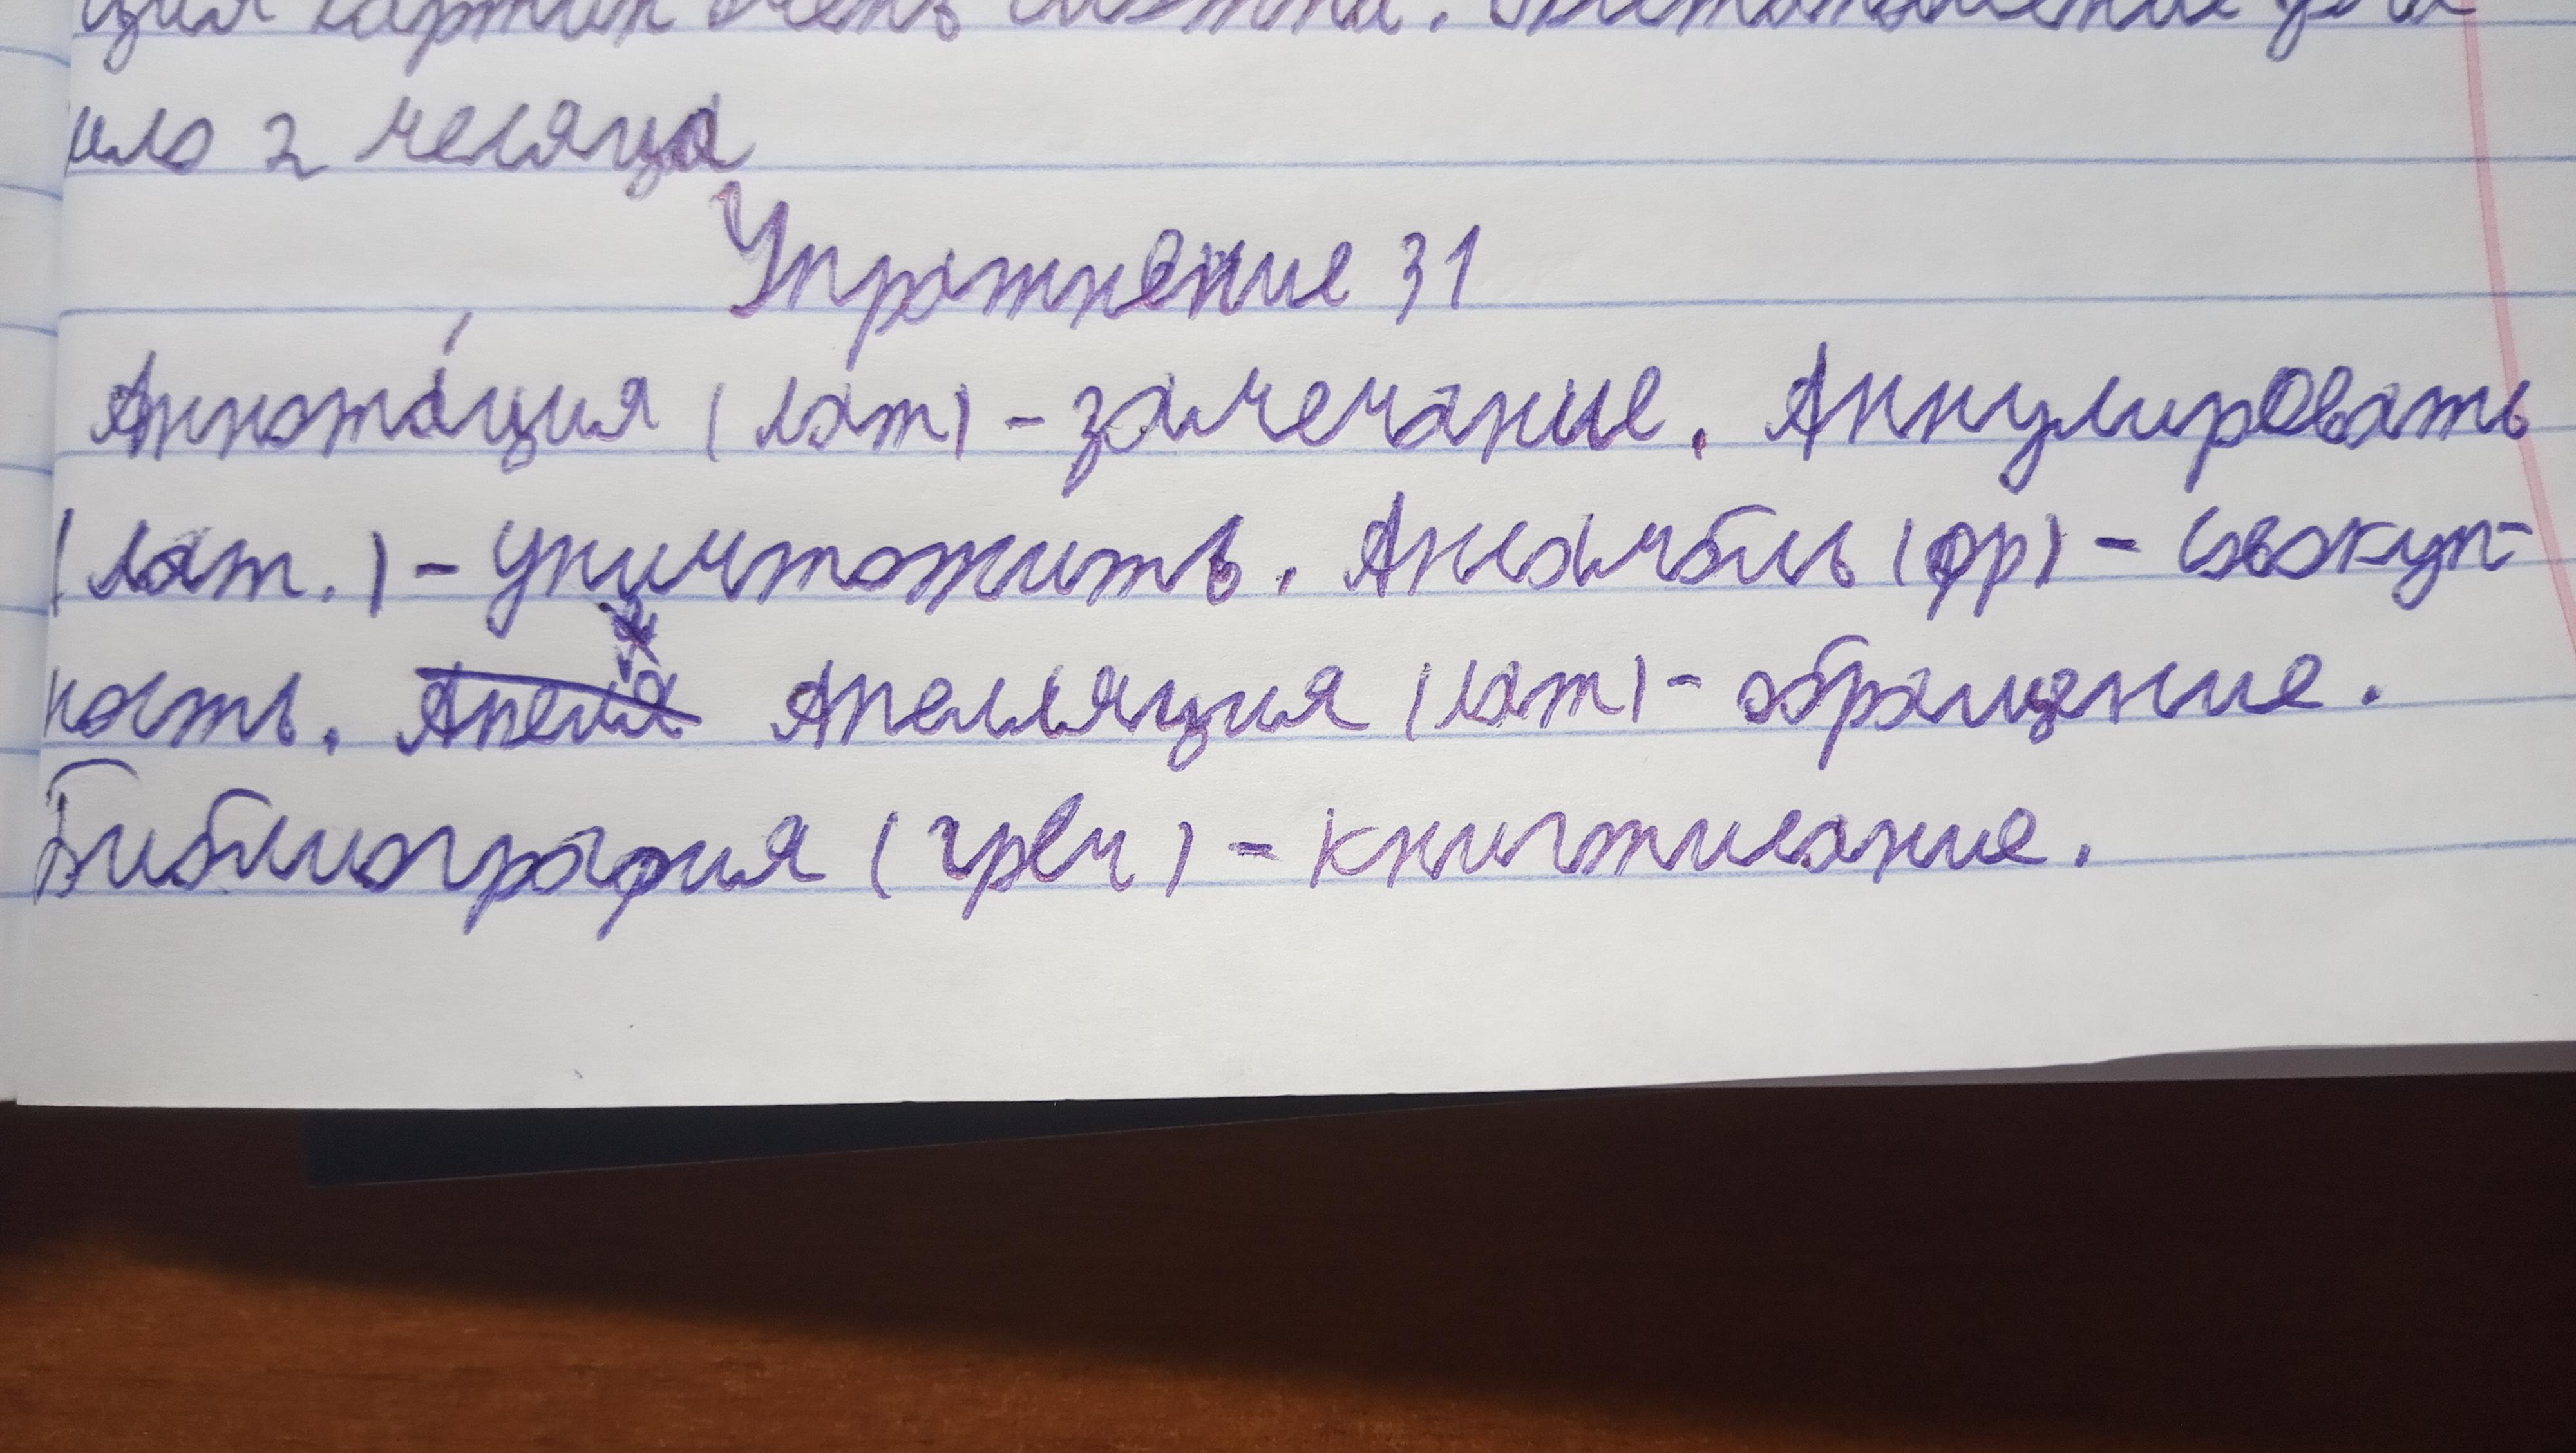 ция картин очень
ило 2 месяца
Упражнение 31
Аннотация (лат) - замечание. Аннулировать
(лат.) - уничтожить. Ансамбль (фр) - совокуп-
ность. Апелляция (лат) - обращение.
Библиография (греч) -